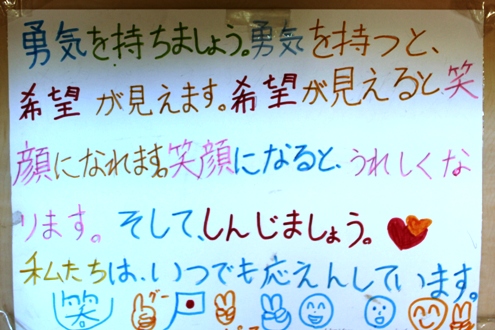 勇気を持ちましょう。勇気を持つと、
希望が見えます。希望が見えると笑
顔になれます。笑顔になると、うれしくな
ります。そして、しんじましょう。
私たちは、いつでも応えんしています。
笑 グー